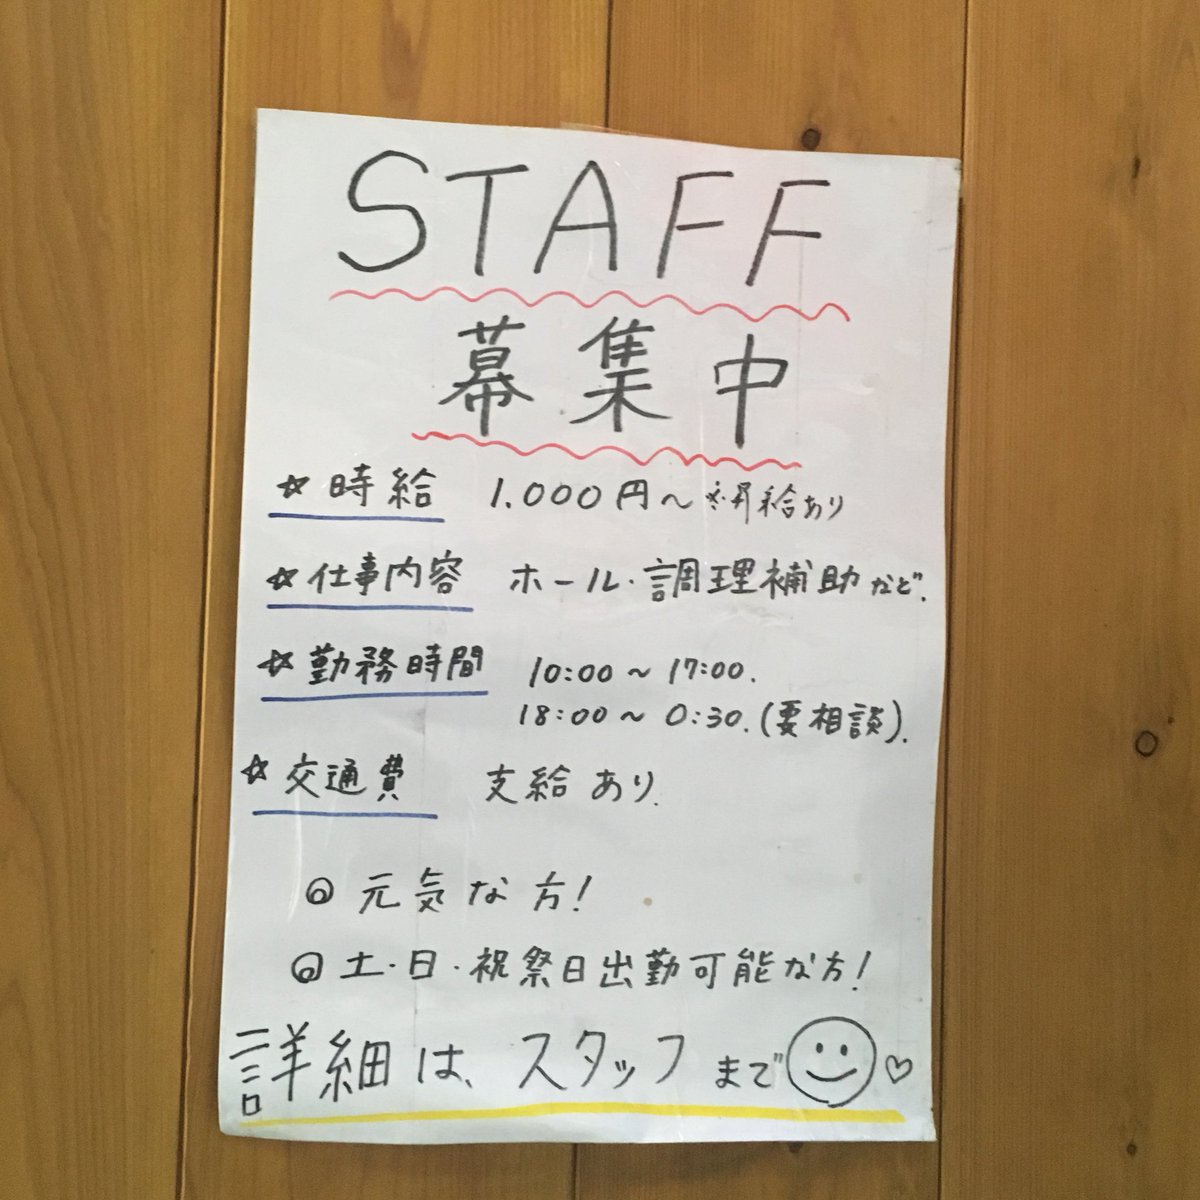 STAFF
幕集中
☆時給 1.000円〜 ※昇給あり
☆仕事内容 ホール・調理補助など.
☆勤務時間 10:00〜17:00.
18:00〜0:30.(要相談).
☆交通費 支給あり.
◎元気な方!
◎土・日・祝祭日出勤可能な方!
詳細は、スタッフまで